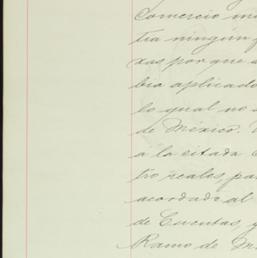 Comercio in
tra ningún
xas por que
bio aplicado
lo qual no
de México.
á la citada
tro reales, pa
acordado al
de Cuentas, y
Ramo de